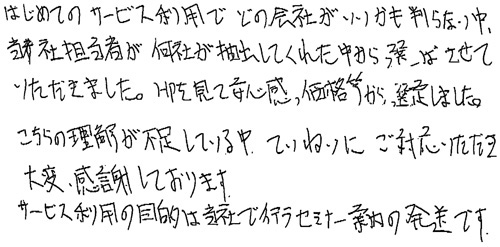 はじめてのサービス利用で どの会社がいいかも判らない中、
弊社担当者が 何社か抽出してくれた中から 選ばさせて
いただきました。HPを見て安心感、価格等から、選定しました。
こちらの理解が不足している中、ていねいに ご対応いただき
大変、感謝しております
サービス利用の目的は当社で行うセミナー案内の発送です。